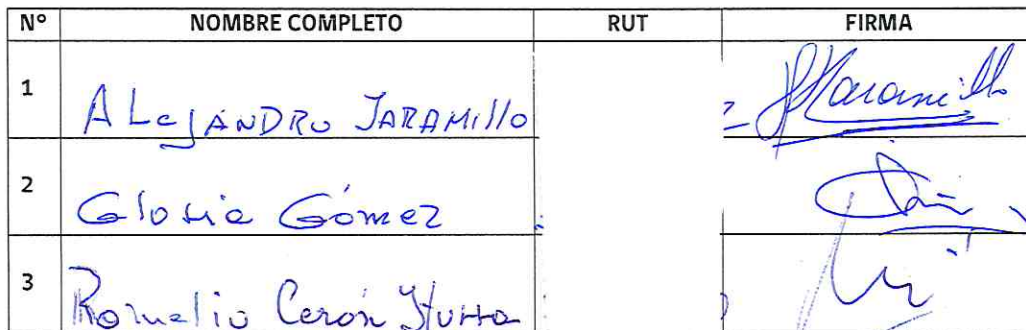 N° NOMBRE COMPLETO RUT FIRMA
1 ALeJANDRO JARAMIllo Jaramillo
2 Gloria Gómez
3 Romelio Cerón Iturra